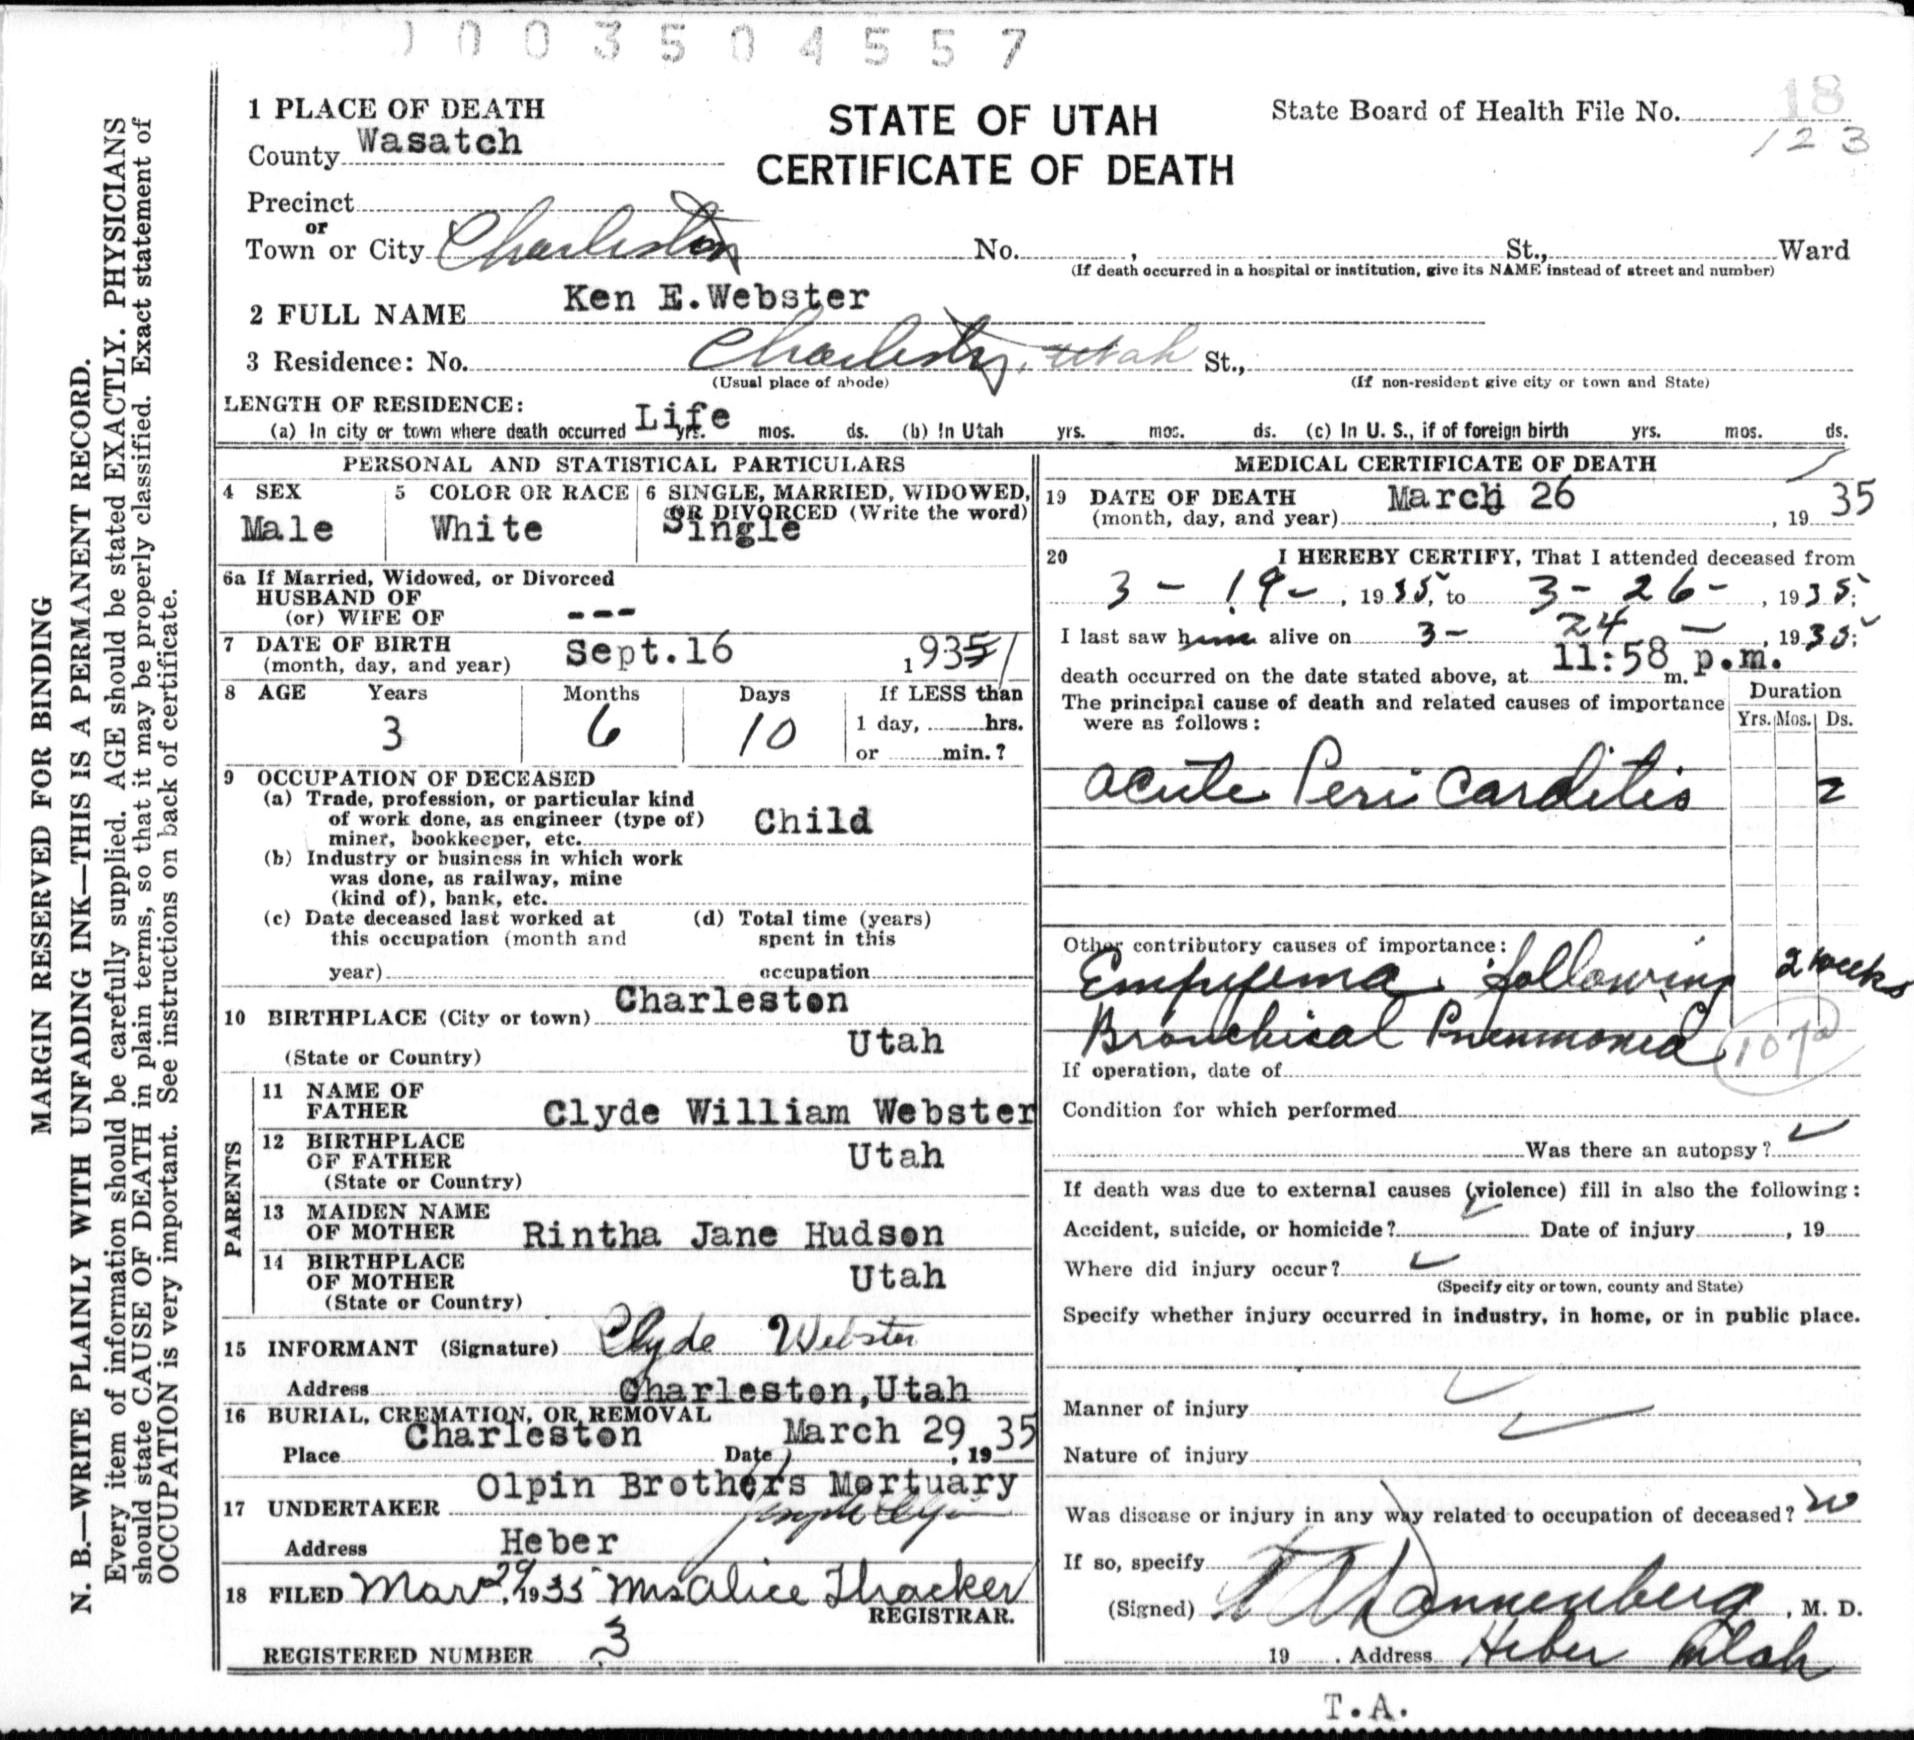 0 0 0 3 5 0 4 5 5 7
1 PLACE OF DEATH
STATE OF UTAH
CERTIFICATE OF DEATH
State Board of Health File No. 18
123
County Wasatch
Precinct
or
Town or City Charleston No. , St., Ward
(If death occurred in a hospital or institution, give its NAME instead of street and number)
2 FULL NAME Ken E.Webster
3 Residence: No. Charleston, Utah St.,
(Usual place of abode) (If non-resident give city or town and State)
LENGTH OF RESIDENCE:
(a) In city or town where death occurred Life yrs. mos. ds. (b) In Utah yrs. mos. ds. (c) In U. S., if of foreign birth yrs. mos. ds.
PERSONAL AND STATISTICAL PARTICULARS
4 SEX
Male
5 COLOR OR RACE
White
6 SINGLE, MARRIED, WIDOWED,
OR DIVORCED (Write the word)
Single
6a If Married, Widowed, or Divorced
HUSBAND OF
(or) WIFE OF ---
7 DATE OF BIRTH
(month, day, and year) Sept.16 1935/
8 AGE Years Months Days If LESS than
3 6 10 1 day, hrs.
or min.?
9 OCCUPATION OF DECEASED
(a) Trade, profession, or particular kind
of work done, as engineer (type of)
miner, bookkeeper, etc. Child
(b) Industry or business in which work
was done, as railway, mine
(kind of), bank, etc.
(c) Date deceased last worked at
this occupation (month and
year)
(d) Total time (years)
spent in this
occupation
10 BIRTHPLACE (City or town) Charleston
Utah
(State or Country)
PARENTS
11 NAME OF
FATHER Clyde William Webster
12 BIRTHPLACE
OF FATHER Utah
(State or Country)
13 MAIDEN NAME
OF MOTHER Rintha Jane Hudson
14 BIRTHPLACE
OF MOTHER Utah
(State or Country)
15 INFORMANT (Signature) Clyde Webster
Address Charleston,Utah
16 BURIAL, CREMATION, OR REMOVAL
Place Charleston Date March 29, 1935
17 UNDERTAKER Olpin Brothers Mortuary
Address Heber
18 FILED Mar 29, 1935 Mrs Alice Thacker
REGISTRAR.
REGISTERED NUMBER 3
MEDICAL CERTIFICATE OF DEATH
19 DATE OF DEATH
(month, day, and year) March 26, 1935
20 I HEREBY CERTIFY, That I attended deceased from
3 - 19 -, 1935, to 3 - 26 -, 1935;
I last saw him alive on 3 - 24 -, 1935;
death occurred on the date stated above, at 11:58 p.m. m.
The principal cause of death and related causes of importance
were as follows:
Duration
Yrs. Mos. Ds.
Acute Pericarditis 2
Other contributory causes of importance:
Empyema following 2 weeks
Bronchical Pneumonia 107a
If operation, date of
Condition for which performed
Was there an autopsy?
If death was due to external causes (violence) fill in also the following:
Accident, suicide, or homicide? Date of injury , 19
Where did injury occur?
(Specify city or town, county and State)
Specify whether injury occurred in industry, in home, or in public place.
Manner of injury
Nature of injury
Was disease or injury in any way related to occupation of deceased? no
If so, specify
(Signed) Dannenberg, M. D.
19 . Address Heber Utah
T.A.
MARGIN RESERVED FOR BINDING
N. B.—WRITE PLAINLY WITH UNFADING INK—THIS IS A PERMANENT RECORD.
Every item of information should be carefully supplied. AGE should be stated EXACTLY. PHYSICIANS
should state CAUSE OF DEATH in plain terms, so that it may be properly classified. Exact statement of
OCCUPATION is very important. See instructions on back of certificate.